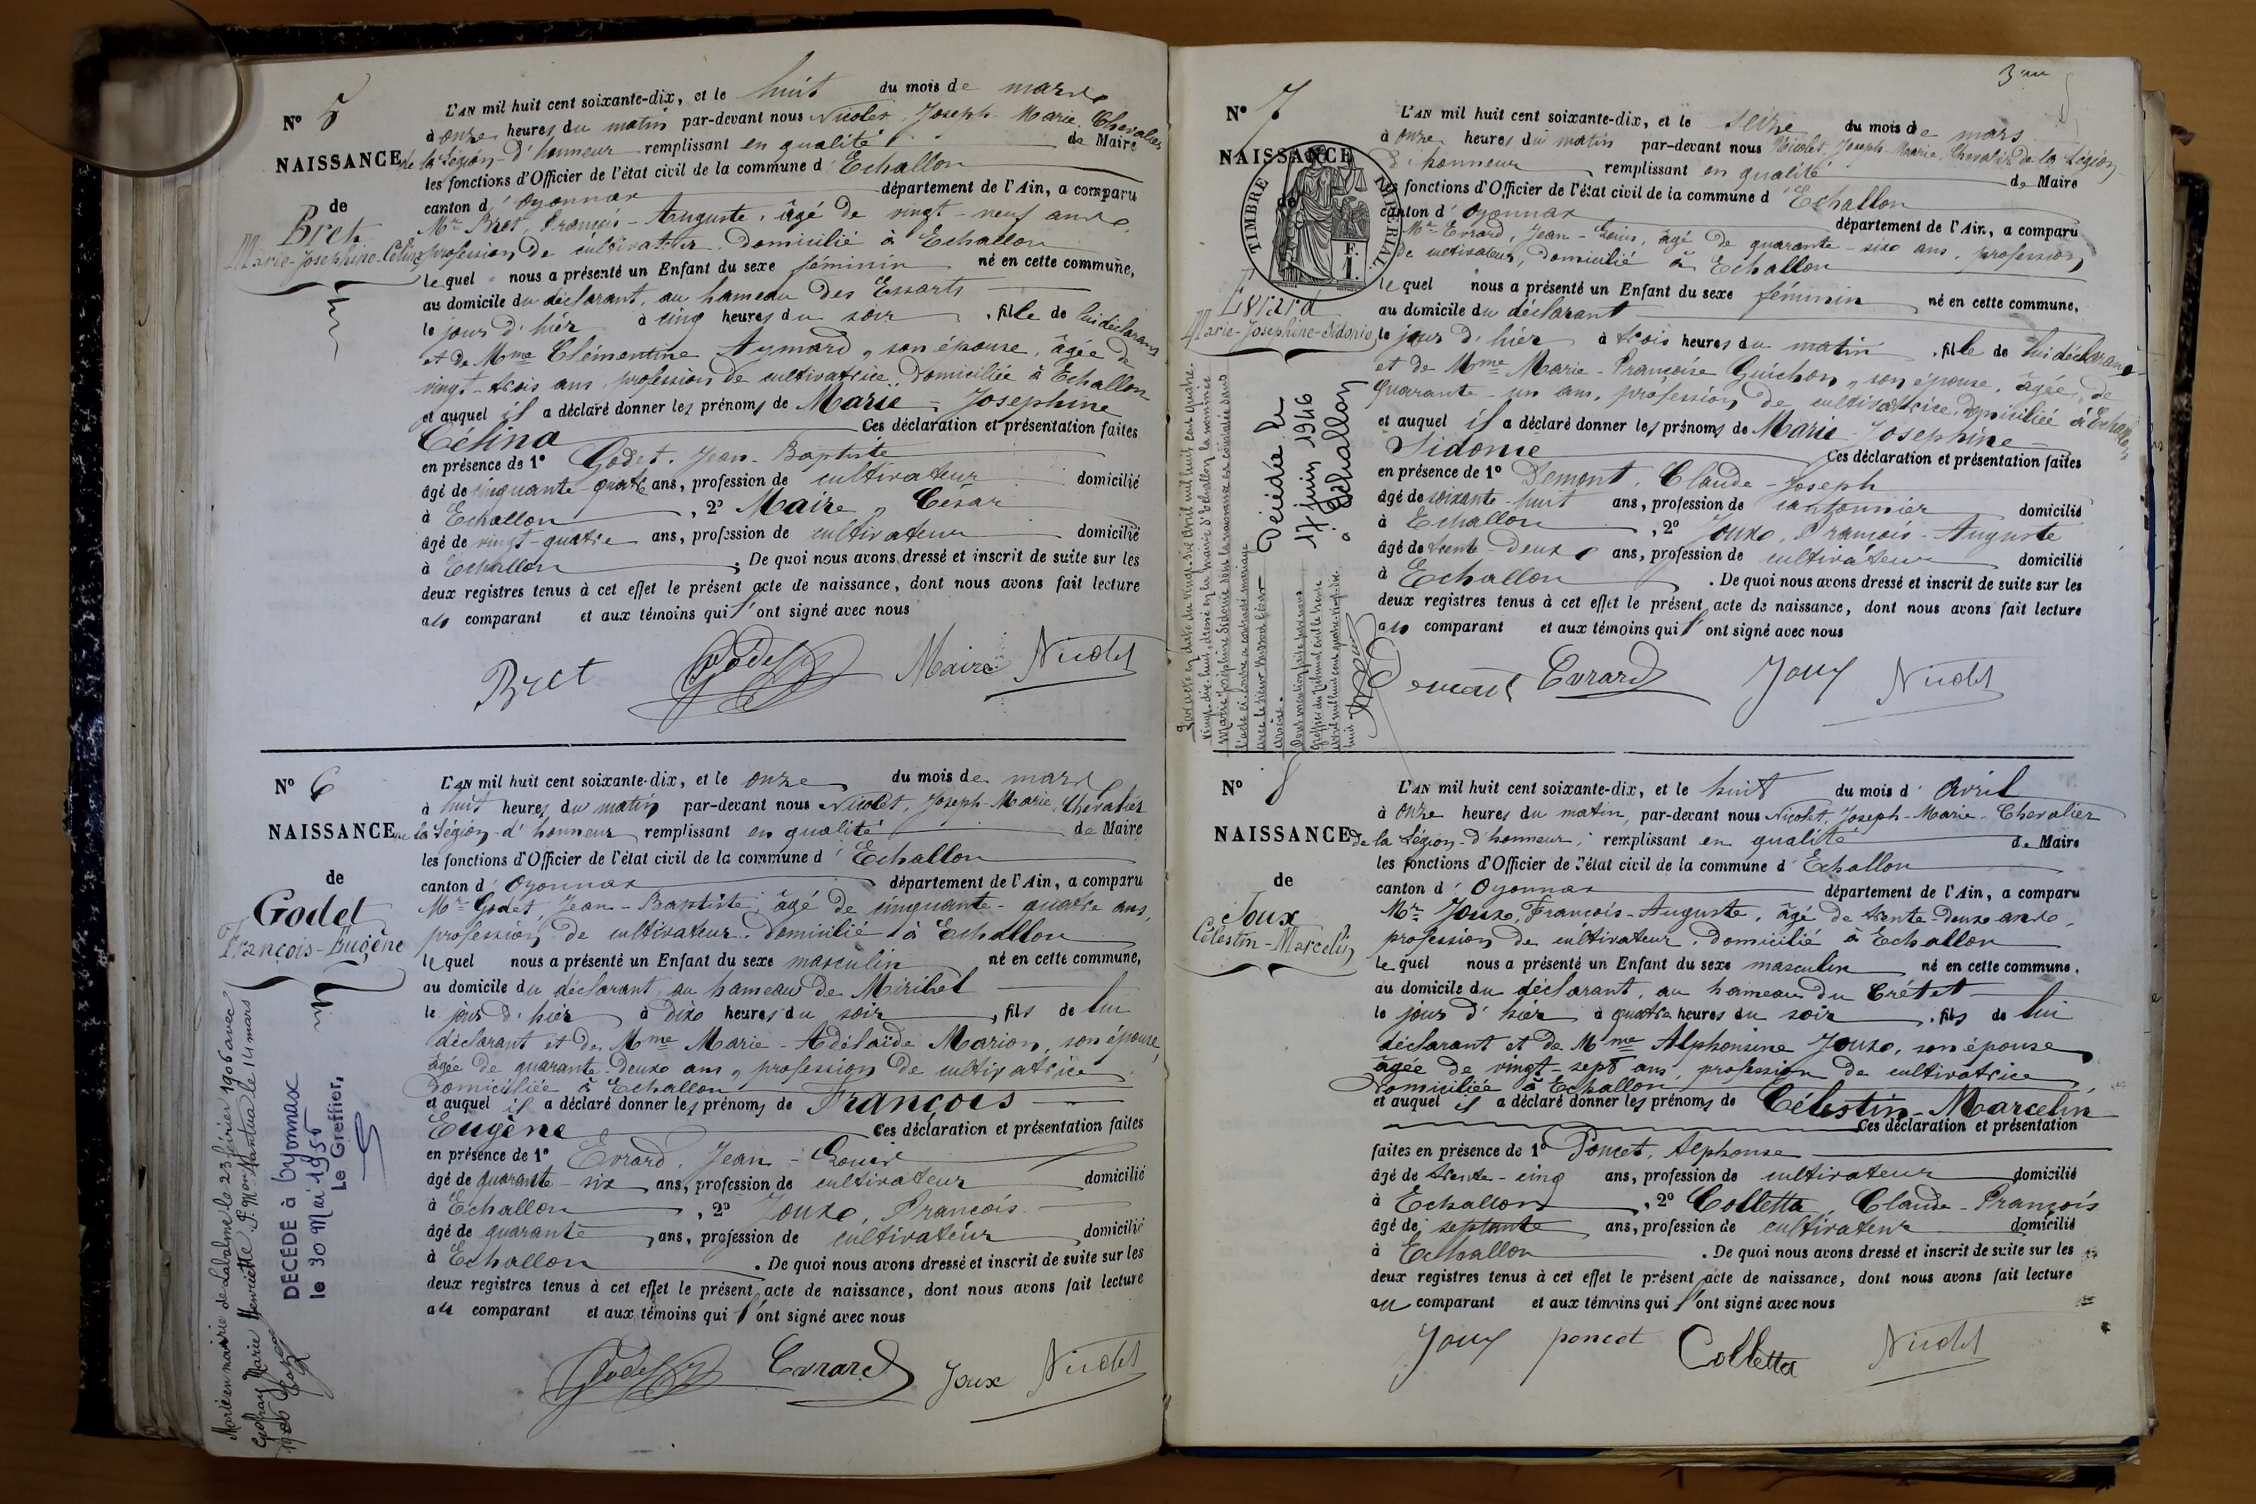 N° 5
NAISSANCE
de
Bret
Marie-Josephine-Célina
L'AN mil huit cent soixante-dix, et le huit du mois de mars
à onze heures du matin par-devant nous Nicolet, Joseph-Marie, Chevalier
de la Légion-d'honneur remplissant en qualité de Maire
les fonctions d'Officier de l'état civil de la commune d'Echallon
canton d'Oyonnax département de l'Ain, a comparu
Mr Bret, François-Auguste, âgé de vingt-neuf ans,
profession de cultivateur, domicilié à Echallon
lequel nous a présenté un Enfant du sexe féminin né en cette commune,
au domicile du déclarant, au hameau des Essarts
le jour d'hier à cinq heures du soir, fille de lui déclarant
et de Mme Clémentine Aymard, son épouse, âgée de
vingt-trois ans, profession de cultivatrice, domiciliée à Echallon
et auquel il a déclaré donner les prénoms de Marie-Josephine
Célina Ces déclaration et présentation faites
en présence de 1° Godet, Jean-Baptiste
âgé de cinquante-quatre ans, profession de cultivateur domicilié
à Echallon, 2° Maire, César
âgé de vingt-quatre ans, profession de cultivateur domicilié
à Echallon. De quoi nous avons dressé et inscrit de suite sur les
deux registres tenus à cet effet le présent acte de naissance, dont nous avons fait lecture
aux comparant et aux témoins qui l'ont signé avec nous
Bret Godet Maire Nicolet
N° 6
NAISSANCE
de
Godet
François-Eugène
Marié en mairie de Lalatme le 23 février 1906 avec
Marie Henriette P. Mon Nantua le 14 mars
1906
DECEDE à Oyonnax
le 30 Mai 1950
Le Greffier,
L'AN mil huit cent soixante-dix, et le onze du mois de mars
à huit heures du matin par-devant nous Nicolet, Joseph-Marie, Chevalier
de la Légion-d'honneur remplissant en qualité de Maire
les fonctions d'Officier de l'état civil de la commune d'Echallon
canton d'Oyonnax département de l'Ain, a comparu
Mr Godet, Jean-Baptiste, âgé de cinquante-quatre ans,
profession de cultivateur, domicilié à Echallon
lequel nous a présenté un Enfant du sexe masculin né en cette commune,
au domicile du déclarant, au hameau de Miribel
le jour d'hier à dix heures du soir, fils de lui
déclarant et de Mme Marie-Adélaïde Marion, son épouse,
âgée de quarante-deux ans, profession de cultivatrice
domiciliée à Echallon
et auquel il a déclaré donner les prénoms de François
Eugène Ces déclaration et présentation faites
en présence de 1° Evrard, Jean-Louis
âgé de quarante-six ans, profession de cultivateur domicilié
à Echallon, 2° Joux, François
âgé de quarante ans, profession de cultivateur domicilié
à Echallon. De quoi nous avons dressé et inscrit de suite sur les
deux registres tenus à cet effet le présent acte de naissance, dont nous avons fait lecture
au comparant et aux témoins qui l'ont signé avec nous
Godet Evrard Joux Nicolet
N° 7
NAISSANCE
de
TIMBRE IMPÉRIAL
F.
1.
Evrard
Marie-Josephine-Sidonie
Décédée le
17 juin 1946
à Echallon
L'AN mil huit cent soixante-dix, et le seize du mois de mars
à onze heures du matin par-devant nous Nicolet, Joseph-Marie, Chevalier de la Légion
d'honneur remplissant en qualité de Maire
les fonctions d'Officier de l'état civil de la commune d'Echallon
canton d'Oyonnax département de l'Ain, a comparu
Mr Evrard, Jean-Louis, âgé de quarante-six ans, profession
de cultivateur, domicilié à Echallon
lequel nous a présenté un Enfant du sexe féminin né en cette commune,
au domicile du déclarant
le jour d'hier à trois heures du matin, fille de lui déclarant
et de Mme Marie-Françoise Guichon, son épouse, âgée de
quarante-un ans, profession de cultivatrice, domiciliée à Echallon
et auquel il a déclaré donner les prénoms de Marie-Josephine
Sidonie Ces déclaration et présentation faites
en présence de 1° Demont, Claude-Joseph
âgé de soixante-huit ans, profession de cantonnier domicilié
à Echallon, 2° Joux, François-Auguste
âgé de trente-deux ans, profession de cultivateur domicilié
à Echallon. De quoi nous avons dressé et inscrit de suite sur les
deux registres tenus à cet effet le présent acte de naissance, dont nous avons fait lecture
aux comparant et aux témoins qui l'ont signé avec nous
Demont Evrard Joux Nicolet
N° 8
NAISSANCE
de
Joux
Célestin-Marcelin
L'AN mil huit cent soixante-dix, et le huit du mois d'Avril
à onze heures du matin, par-devant nous Nicolet, Joseph-Marie, Chevalier
de la Légion-d'honneur, remplissant en qualité de Maire
les fonctions d'Officier de l'état civil de la commune d'Echallon
canton d'Oyonnax département de l'Ain, a comparu
Mr Joux, François-Auguste, âgé de trente-deux ans,
profession de cultivateur, domicilié à Echallon
lequel nous a présenté un Enfant du sexe masculin né en cette commune,
au domicile du déclarant, au hameau du Crétet
le jour d'hier à quatre heures du soir, fils de lui
déclarant et de Mme Alphonsine Joux, son épouse
âgée de vingt-sept ans, profession de cultivatrice,
domiciliée à Echallon
et auquel il a déclaré donner les prénoms de Célestin-Marcelin
Ces déclaration et présentation
faites en présence de 1° Poncet, Alphonse
âgé de trente-cinq ans, profession de cultivateur domicilié
à Echallon, 2° Colletta, Claude-François
âgé de septante ans, profession de cultivateur domicilié
à Echallon. De quoi nous avons dressé et inscrit de suite sur les
deux registres tenus à cet effet le présent acte de naissance, dont nous avons fait lecture
au comparant et aux témoins qui l'ont signé avec nous
Joux poncet Colletta Nicolet